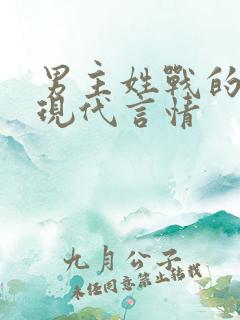 男主姓戰的
現代言情
九月公子
未经同意禁止转载